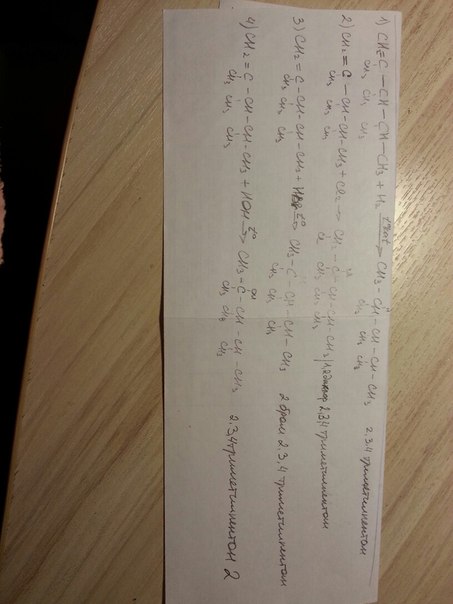 1) CH2=C – CH – CH – CH3 + H2 t°kat→ CH3 – CH – CH – CH – CH3 2,3,4 триметилпентан
CH3 CH3 CH3 CH3 CH3 CH3
2) CH2 = C – CH – CH – CH3 + Cl2 → CH2 – C – CH – CH – CH3 2,3,4 триметилпентан
CH3 CH3 CH3 Cl CH3 CH3 CH3
3) CH2 = C – CH – CH – CH3 + HBr t°→ CH3 – C – CH – CH – CH3 2 бром 2,3,4 триметилпентан
CH3 CH3 CH3 CH3 CH3 CH3
4) CH2 = C – CH – CH – CH3 + HOH t°→ CH3 – C – CH – CH – CH3 2,3,4 триметилпентон 2
CH3 CH3 CH3 OH CH3 CH3 CH3